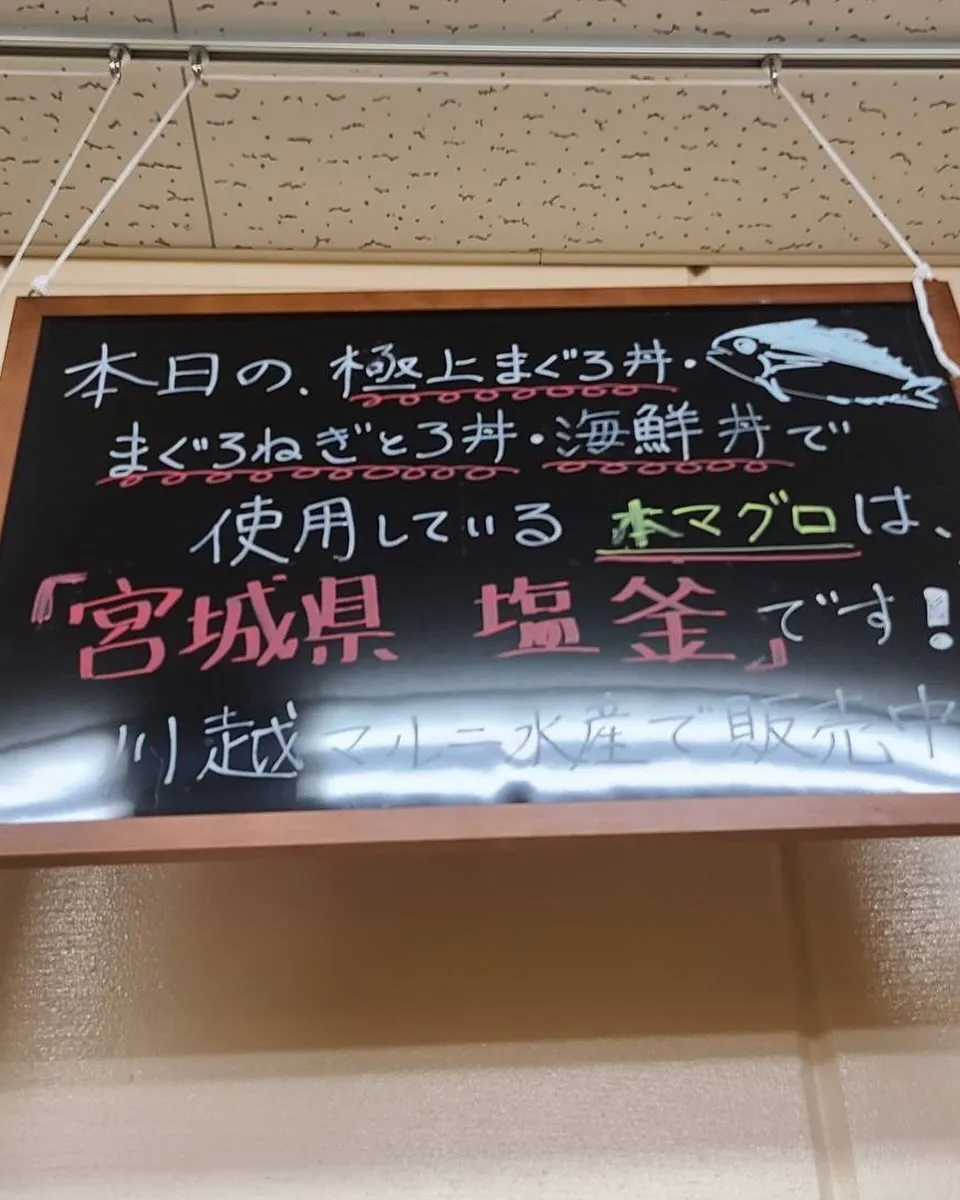 本日の、極上まぐろ丼・
まぐろねぎとろ丼・海鮮丼で
使用している 本マグロは、
「宮城県 塩釜」です!
川越マルニ水産で販売中